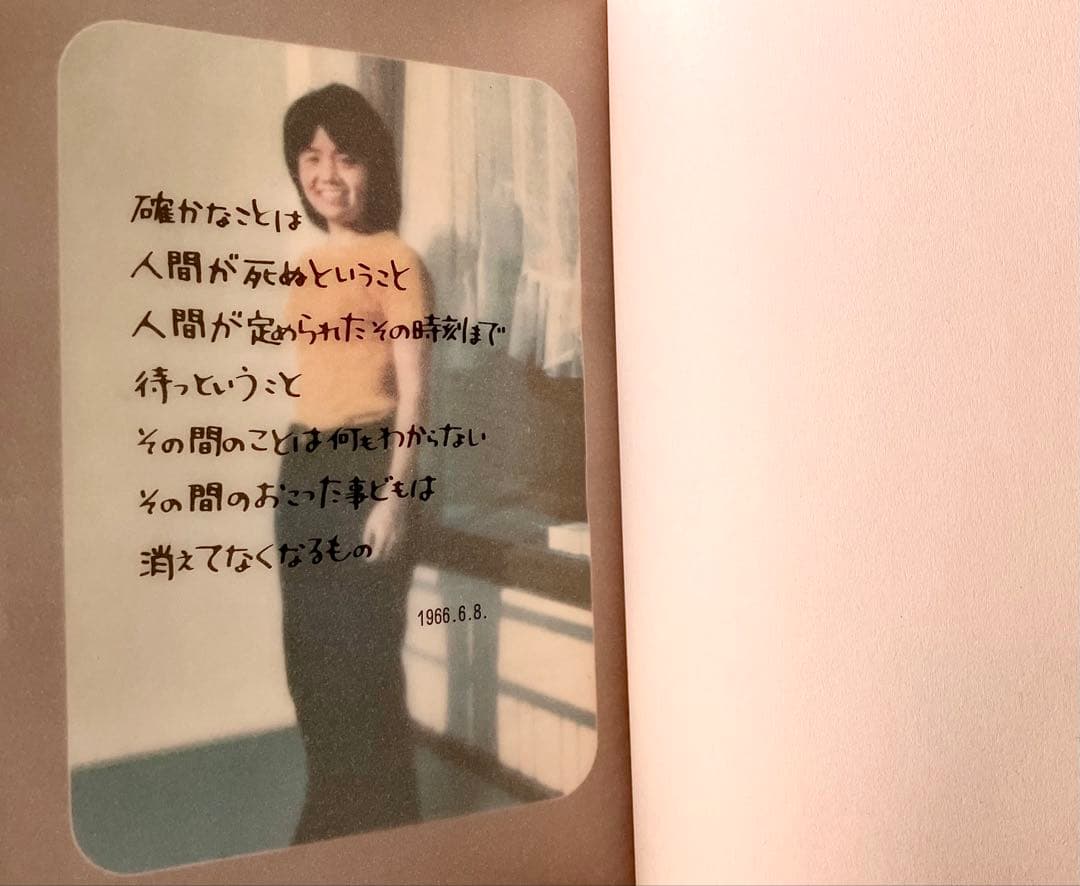 確かなことは
人間が死ぬということ
人間が定められたその時刻まで
待っということ
その間のことは何もわからない
その間のおこった事どもは
消えてなくなるもの
1966.6.8.